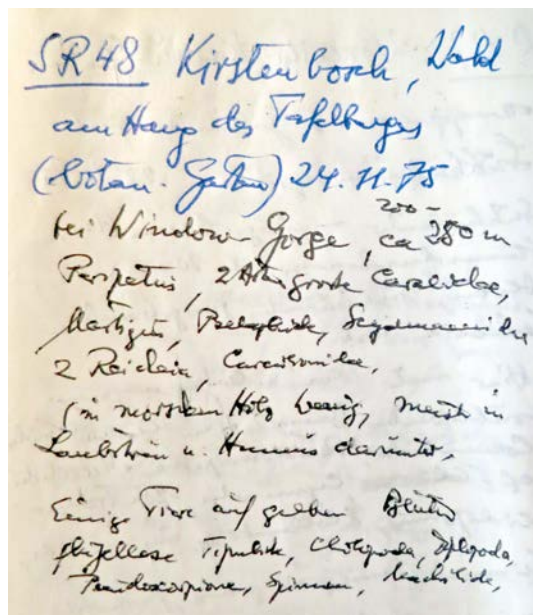 SR48 Kirstenbosch, Wald
am Hang des Tafelberges
(botan. Garten) 24.11.75
bei Window Gorge, ca 200-280 m
Peripatus, 2 Arten grosse Carabidae,
Mastigus, Pselaphidae, Scydmaenidae
2 Reicheia, Curculionidae,
(in morschem Holz wenig, meist in
Laubstreu u. Humus darunter,
Einige Tiere auf gelben Blüten
flügellose Tipulidae, Chilopoda, Diplopoda,
Pseudoscorpione, Spinnen, Machilidae,